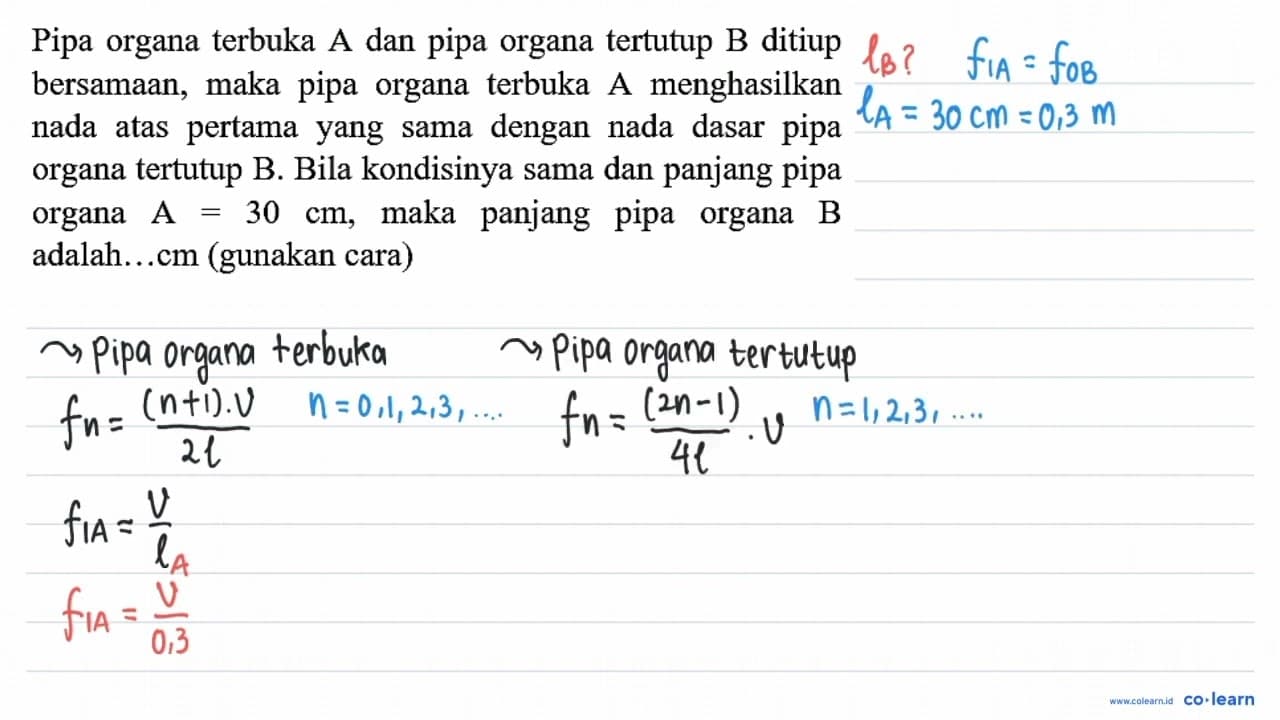 Pipa organa terbuka A dan pipa organa tertutup B ditiup
bersamaan, maka pipa organa terbuka A menghasilkan
nada atas pertama yang sama dengan nada dasar pipa
organa tertutup B. Bila kondisinya sama dan panjang pipa
organa A = 30 cm, maka panjang pipa organa B
adalah...cm (gunakan cara)
lB? f1A = fOB
lA = 30 cm = 0,3 m
⤳ Pipa organa terbuka
fn = (n+1).V / 2l n = 0,1,2,3, ....
f1A = V / lA
f1A = V / 0,3
⤳ Pipa organa tertutup
fn = (2n-1) / 4l . V n = 1,2,3, ....
www.colearn.id co·learn